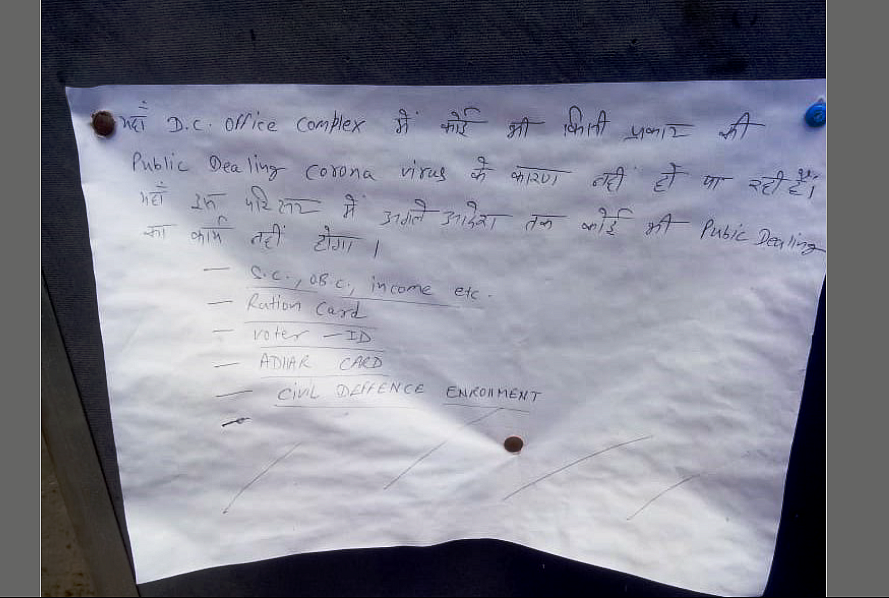 यहाँ D.C. Office Complex में कोई भी किसी प्रकार की
Public Dealing Corona virus के कारण नहीं हो पा रही है।
यहाँ इस परिसर में अगले आदेश तक कोई भी Pubic Dealing
का कार्य नहीं होगा ।
— S.C., OB.C., income etc.
— Ration Card
— Voter - ID
— ADHAR CARD
— CIVIL DEFFENCE ENROLLMENT